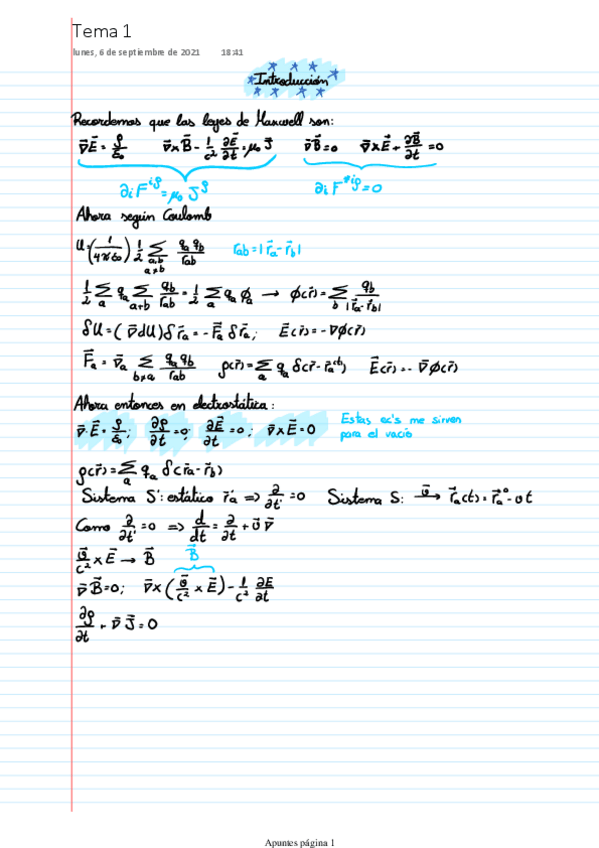 Tema 1
lunes, 6 de septiembre de 2021 18:41
Introducción
Recordemos que las leyes de Maxwell son:
∇⃗E⃗ = ρ/ε₀ ∇⃗×B⃗ - 1/c² ∂E⃗/∂t = μ₀ J⃗ ∇⃗B⃗ = 0 ∇⃗×E⃗ + ∂B⃗/∂t = 0
∂ᵢ F^{iρ} = μ₀ J^ρ ∂ᵢ F^{*iρ} = 0
Ahora según Coulomb
U = (1/4πε₀) 1/2 Σ_{a,b a≠b} q_a q_b / r_ab r_ab = |r⃗_a - r⃗_b|
1/2 Σ_a q_a Σ_{a≠b} q_b/r_ab = 1/2 Σ_a q_a ϕ_a → ϕ(r⃗) = Σ_b q_b/|r⃗_a - r⃗_b|
δU = (∇⃗dU) δr⃗_a = -F⃗_a δr⃗_a; E⃗(r⃗) = -∇ϕ(r⃗)
F⃗_a = ∇⃗_a Σ_{b≠a} q_a q_b / r_ab ρ(r⃗) = Σ_a q_a δ(r⃗ - r⃗_a(t)) E⃗(r⃗) = -∇⃗ϕ(r⃗)
Ahora entonces en electrostática:
∇⃗·E⃗ = ρ/ε₀; ∂ρ/∂t = 0; ∂E⃗/∂t = 0; ∇⃗×E⃗ = 0
Estas ec's me sirven
para el vacío
ρ(r⃗) = Σ_a q_a δ(r⃗_a - r⃗_b)
Sistema S': estático r⃗'_a => ∂/∂t' = 0 Sistema S: v⃗→ r⃗_a(t) = r⃗_a° - vt
Como ∂/∂t' = 0 => d/dt = ∂/∂t + v⃗ ∇⃗
v⃗/c² × E⃗ → B⃗
B⃗
∇⃗B⃗ = 0; ∇⃗×(v⃗/c² × E⃗) - 1/c² ∂E/∂t
∂ρ/∂t + ∇⃗ J⃗ = 0
Apuntes página 1